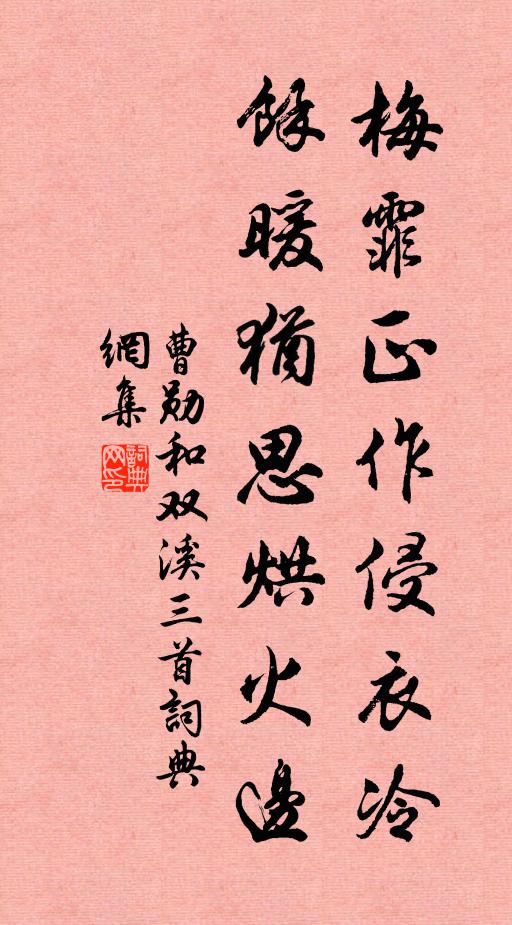 梅霏正作侵衣冷
餘暖猶思烘火邊
曹勋和双溪三首詞典
網集
詞典
网印